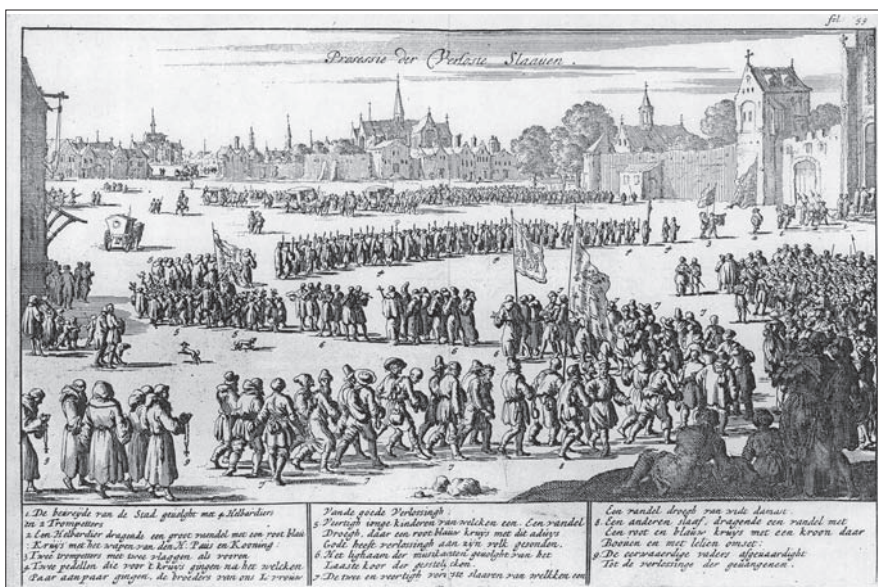 fol 53
Prosessie der Verloste Slaaven.
1. De bereyde van de Stad gevolght met 4 Helbardiers
en 2 Trompetters
2. Een Helbardier dragende een groot vaendel met een root blau
Kruys met het wapen van den H. Paus en Kooning:
3. Twee trompetters met twee vlaggen als vooren
4. Twee pedellen die voor t kruys gingen na het welcken
Paar aan paar gingen, de broeders van ons L: vrouw
Vande goede Verlossingh:
5. Veertigh jonge kinderen van welcken een. Een vandel
Droegh, daar een root blauw kruys met dit advys
Godt heeft verlossingh aan zijn volk gesonden.
6. Het lighaam der musikanten gevolght van het
Laaste koor der geestelijkheyt.
7. De twee en veertigh verloste slaaven van welkken een
Een vandel droegh van widt damast.
8. Een anderen slaaf, dragende een vandel met
Een root en blauw kruys met een kroon daar
Boonen en met lelien omset:
9. De eerwaerdige vaders afgevaardight
Tot de verlossinge der gevangenen.